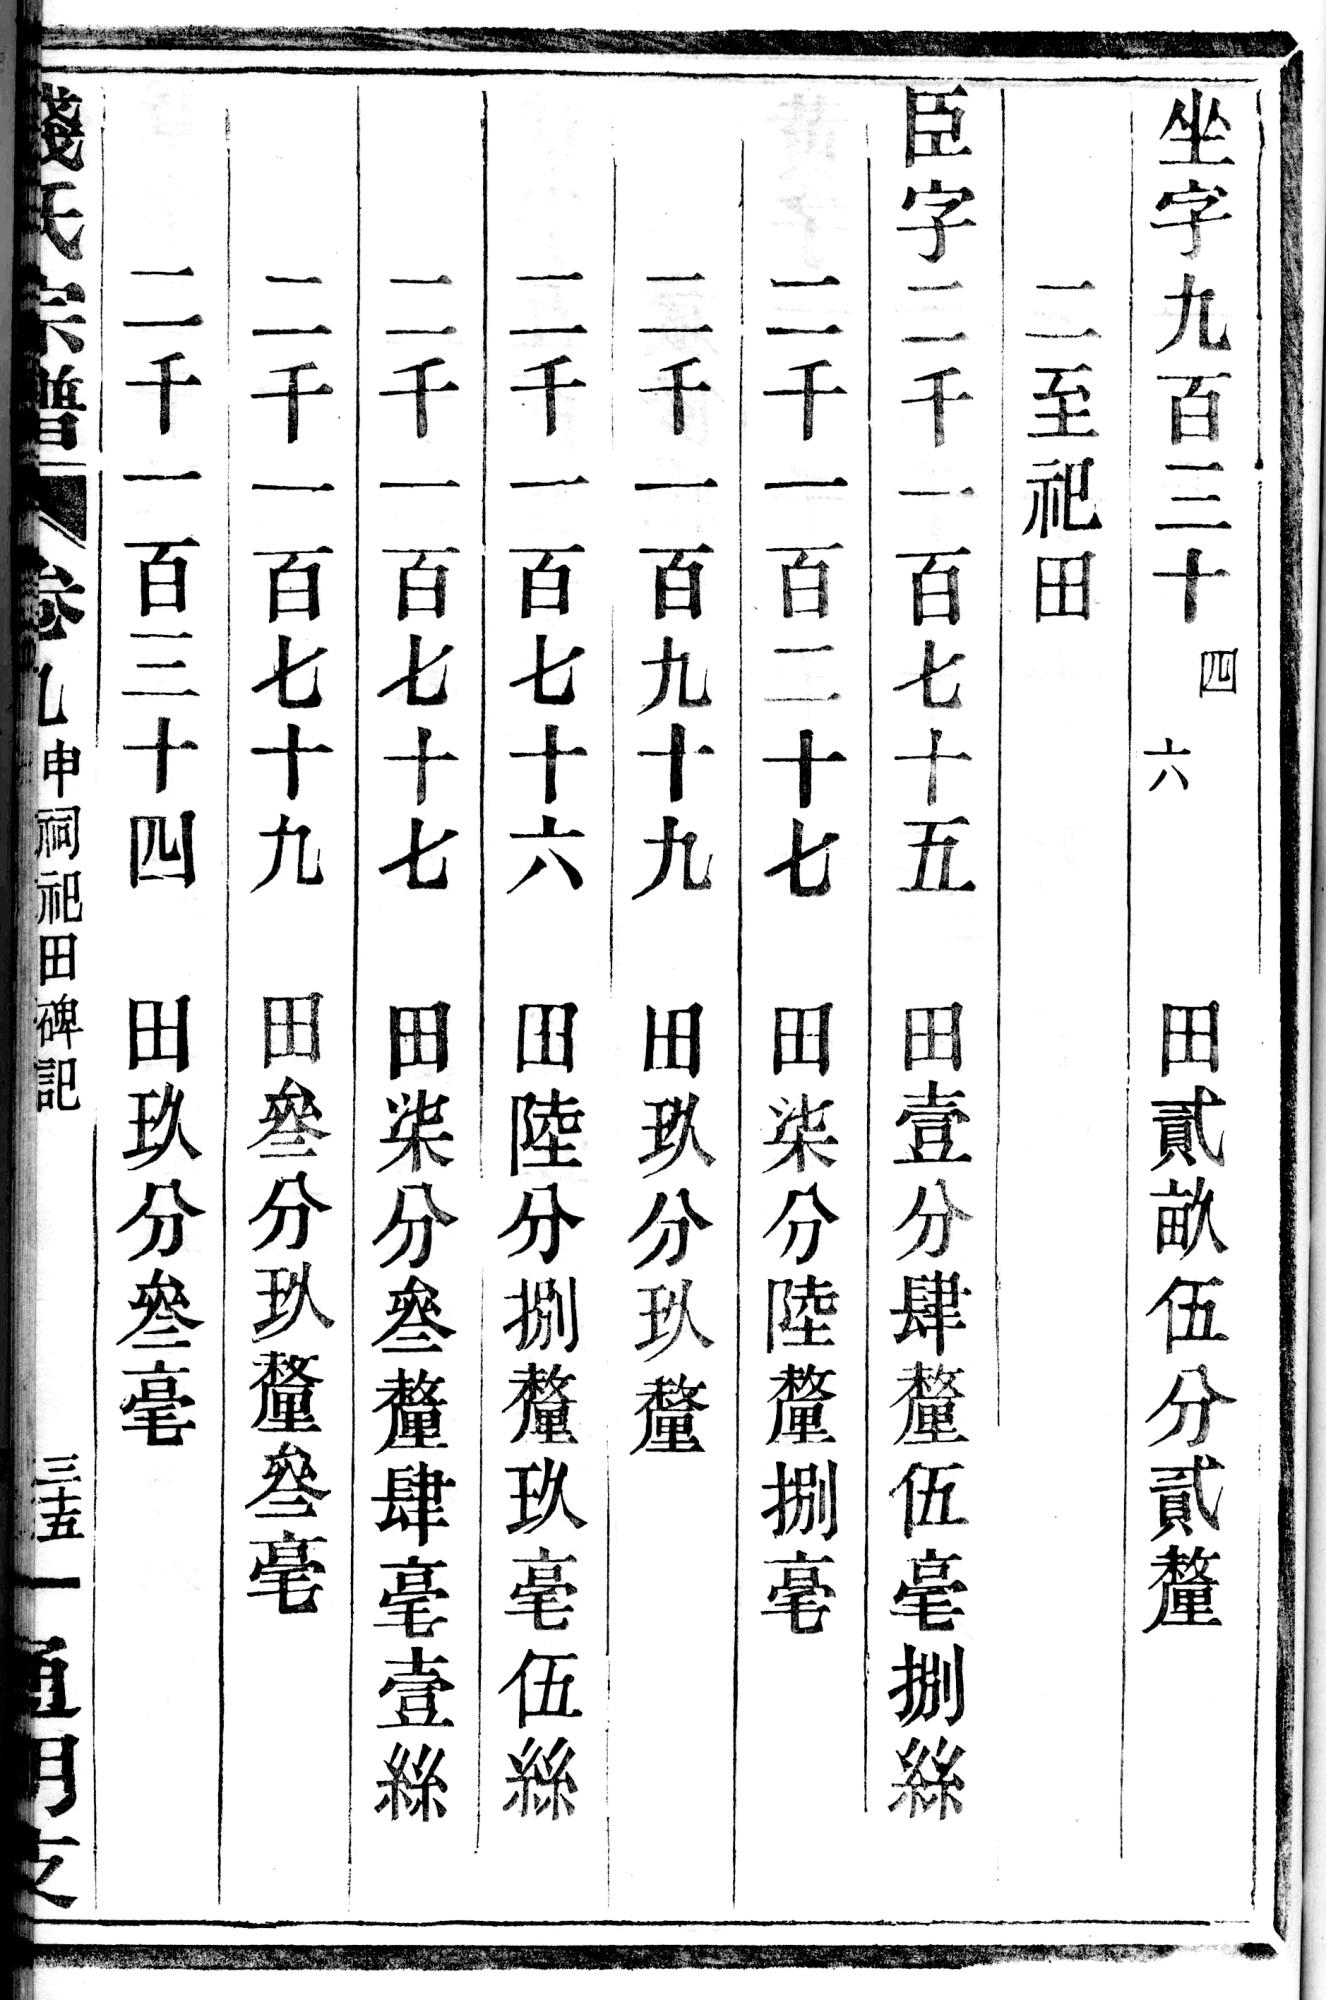 坐字九百三十四六　田貳畝伍分貳釐
二至祀田
臣字二千一百七十五　田壹分肆釐伍毫捌絲
二千一百二十七　田柒分陸釐捌毫
二千一百九十九　田玖分玖釐
二千一百七十六　田陸分捌釐玖毫伍絲
二千一百七十七　田柒分叄釐肆毫壹絲
二千一百七十九　田叄分玖釐叄毫
二千一百三十四　田玖分叄毫
錢氏宗譜　卷九　申祠祀田碑記　三十五　通明支